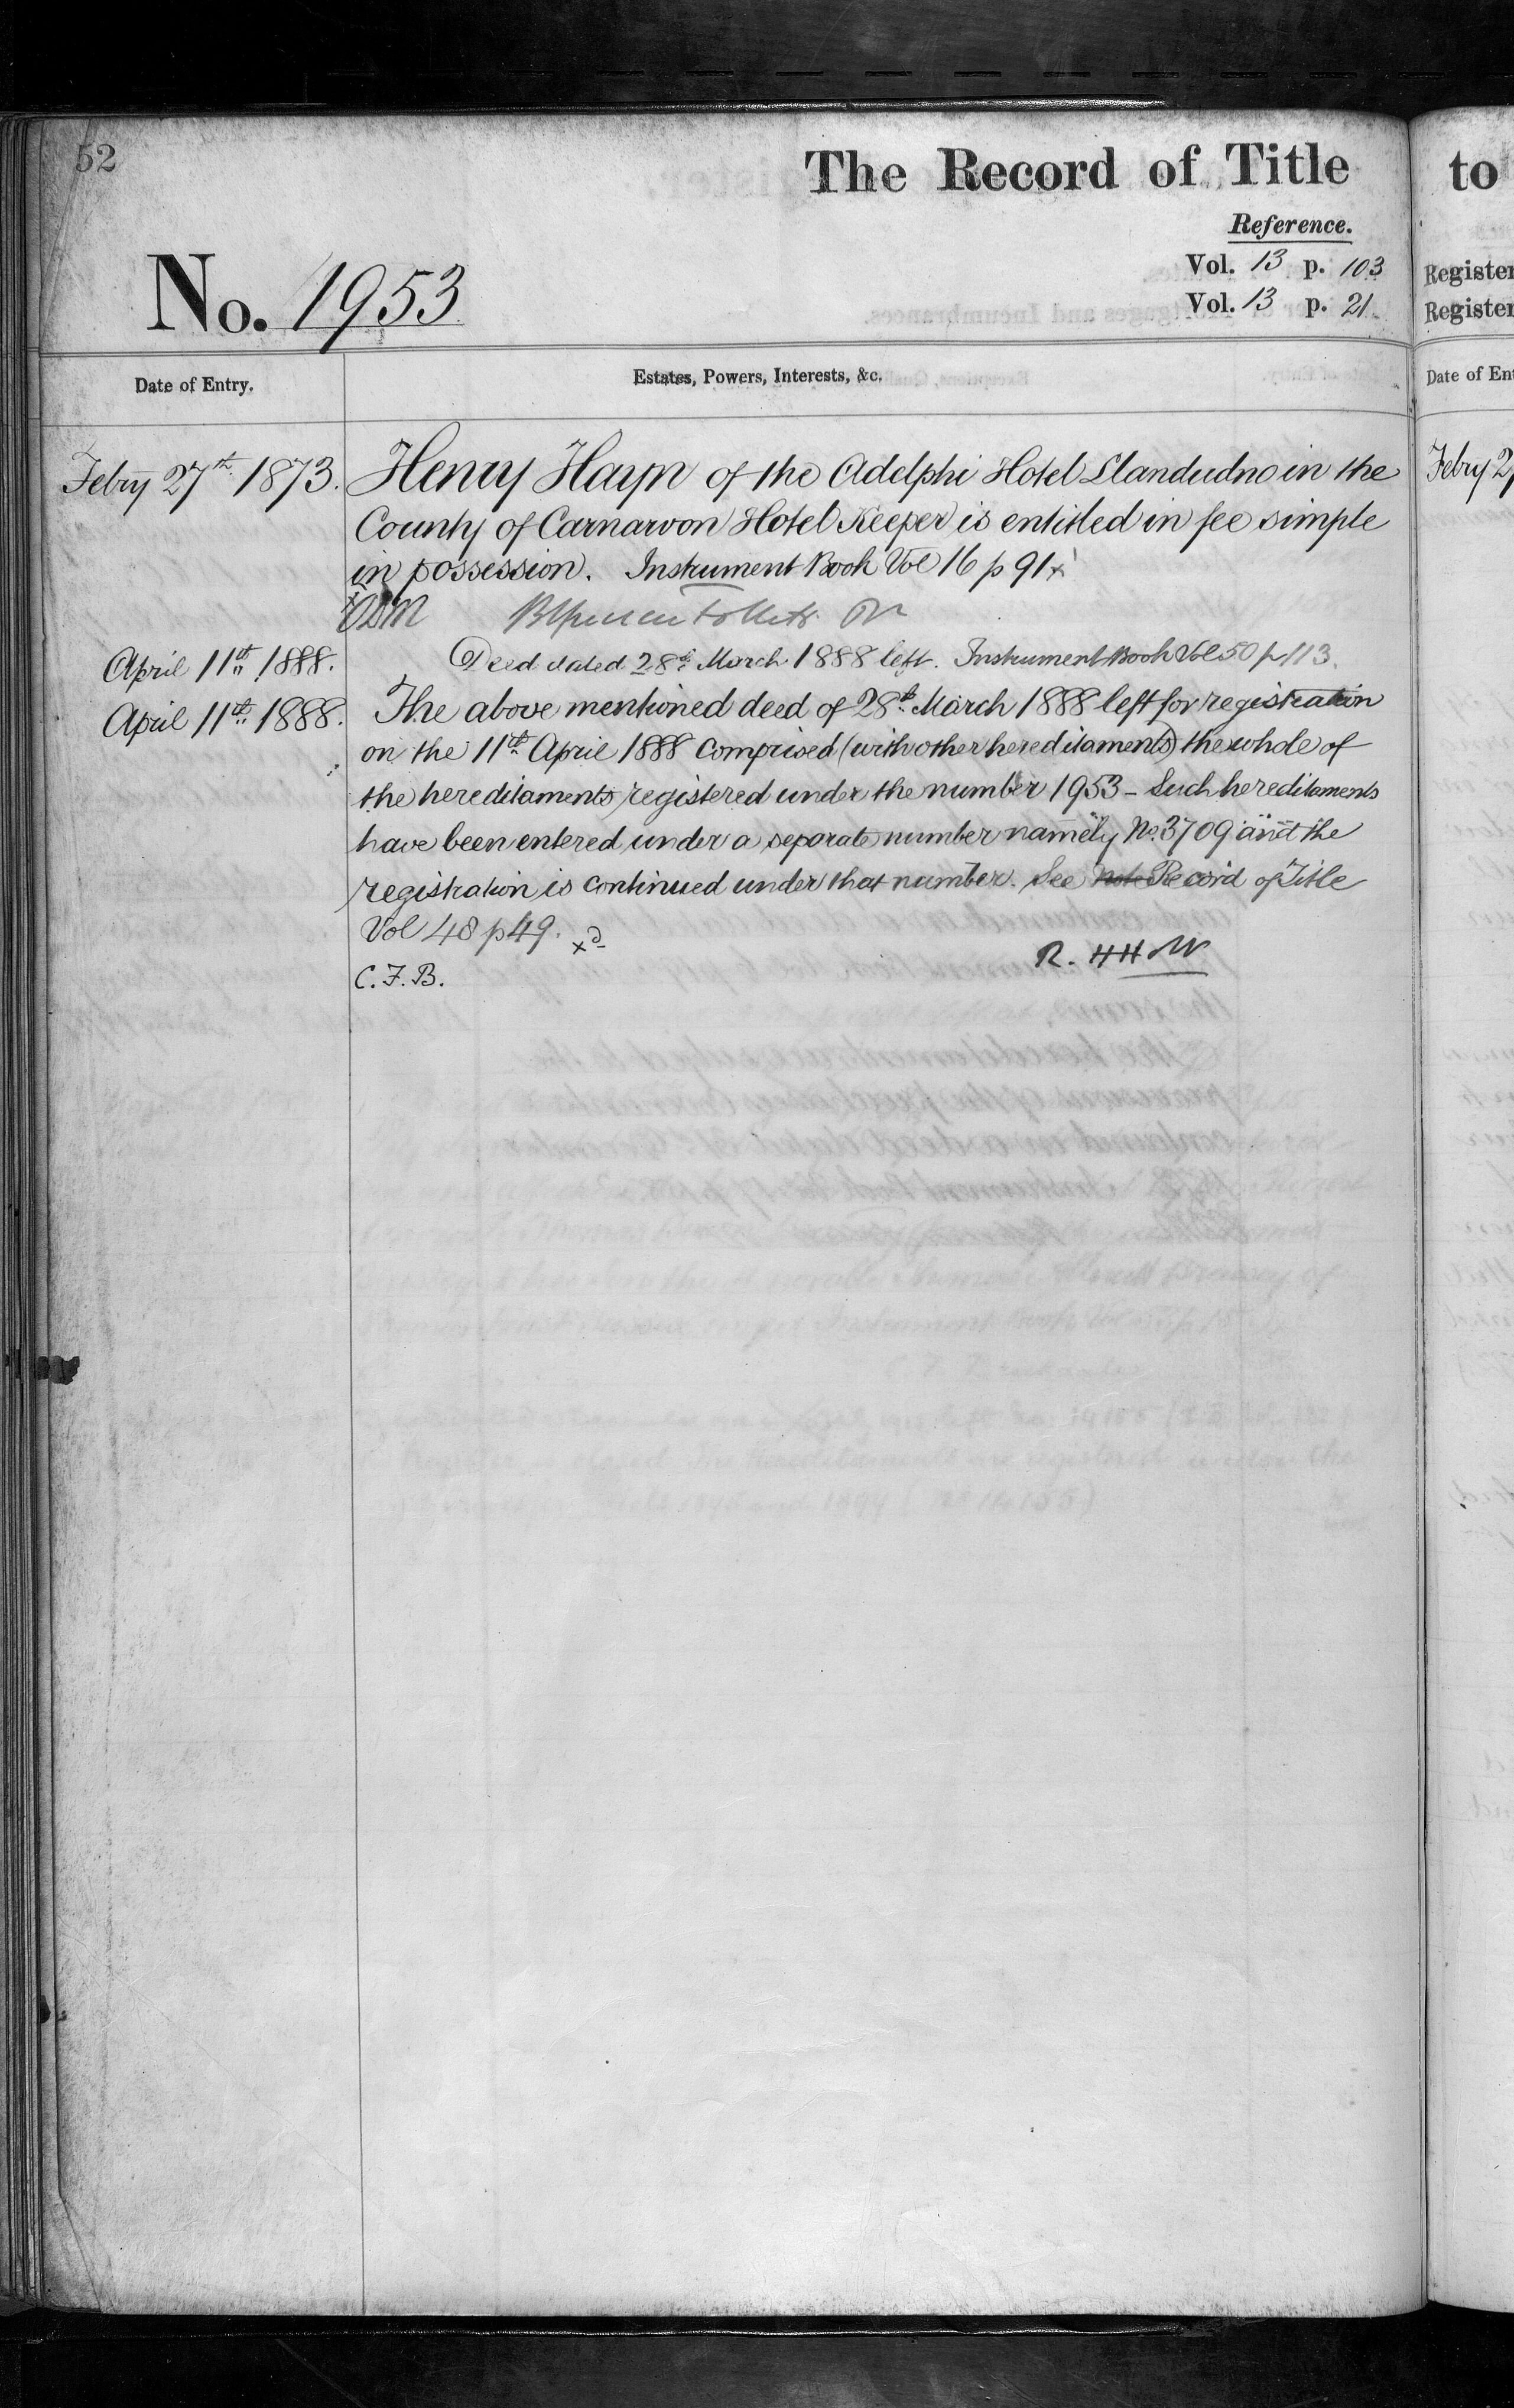 52
The Record of Title
Reference.
Vol. 13 p. 103
Vol. 13 p. 21
No. 1953
Date of Entry.
Estates, Powers, Interests, &c.
Febry 27th 1873. Henry Hayn of the Adelphi Hotel Llandudno in the
County of Carnarvon Hotel Keeper is entitled in fee simple
in possession. Instrument Book Vol 16 p 91 x
April 11th 1888. Deed dated 28th March 1888 left. Instrument Book Vol 50 p 113.
April 11th 1888. The above mentioned deed of 28th March 1888 left for registration
on the 11th April 1888 comprised (with other hereditaments) the whole of
the hereditaments registered under the number 1953 – Such hereditaments
have been entered under a separate number namely No. 3709 and the
registration is continued under that number. See note Record of Title
Vol 48 p 49.
R. HHW
C.F.B.
to
Register
Register
Date of Ent
Febry 2